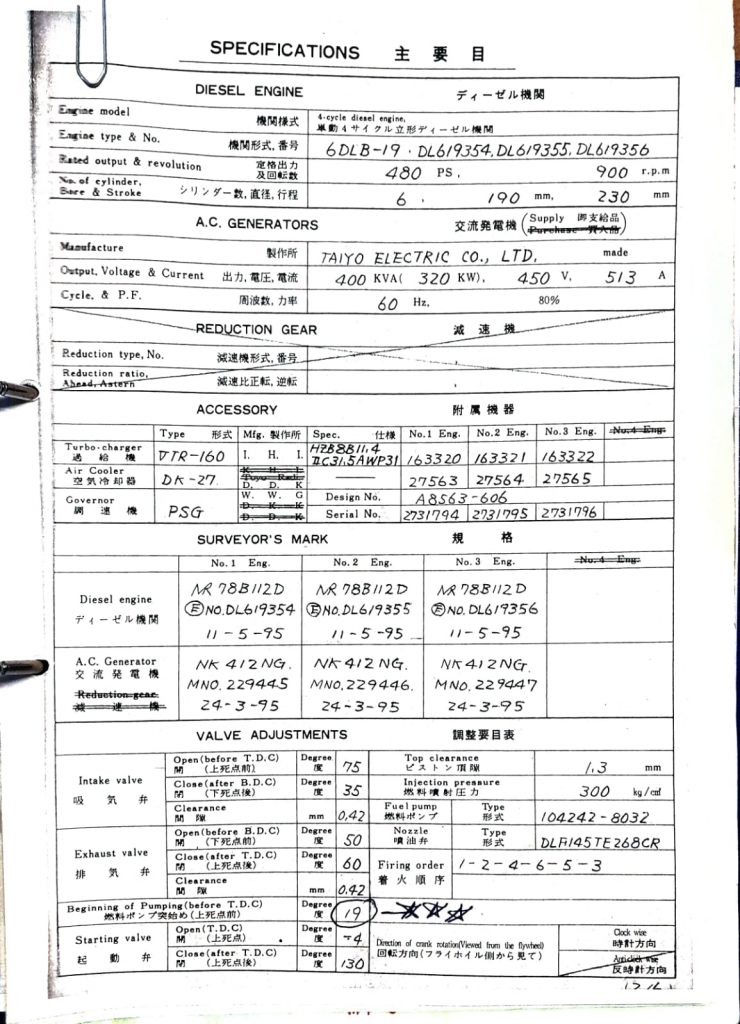 SPECIFICATIONS 主要目
DIESEL ENGINE ディーゼル機関
Engine model 機関様式 4-cycle diesel engine, 単動4サイクル立形ディーゼル機関
Engine type & No. 機関形式, 番号 6DLB-19 . DL619354, DL619355, DL619356
Rated output & revolution 定格出力及回転数 480 PS, 900 r.p.m
No. of cylinder, Bore & Stroke シリンダー数, 直径, 行程 6, 190 mm, 230 mm
A.C. GENERATORS 交流発電機 (Supply 即支給品 Purchase 買入品)
Manufacture 製作所 TAIYO ELECTRIC CO., LTD, made
Output, Voltage & Current 出力, 電圧, 電流 400 KVA( 320 KW), 450 V, 513 A
Cycle, & P.F. 周波数, 力率 60 Hz, 80%
REDUCTION GEAR 減速機
Reduction type, No. 減速機形式, 番号
Reduction ratio, Ahead, Astern 減速比正転, 逆転
ACCESSORY 附属機器
Type 形式 Mfg. 製作所 Spec. 仕様 No.1 Eng. No.2 Eng. No.3 Eng. No.4 Eng.
Turbo-charger 過給機 VTR-160 I. H. I. 163320 163321 163322
Air Cooler 空気冷却器 DK-27. K. H. I. Toyo Radi. D. D. K 27563 27564 27565
Governor 調速機 PSG W. W. G D. K. K D. D. K Design No. A8563-606
Serial No. 2731794 2731795 2731796
SURVEYOR'S MARK 規格
No.1 Eng. No.2 Eng. No.3 Eng. No.4 Eng.
Diesel engine ディーゼル機関
NR 78B112D NR 78B112D NR 78B112D
Ⓔ NO.DL619354 Ⓔ NO.DL619355 Ⓔ NO.DL619356
11-5-95 11-5-95 11-5-95
A.C. Generator 交流発電機
Reduction gear 減速機
NK 412NG. NK 412NG. NK 412NG.
MNO. 229445 MNO. 229446. MNO. 229447
24-3-95 24-3-95 24-3-95
VALVE ADJUSTMENTS 調整要目表
Intake valve 吸気弁
Open(before T.D.C) 開 (上死点前) Degree 度 75
Close(after B.D.C) 閉 (下死点後) Degree 度 35
Clearance 間隙 mm 0.42
Top clearance ピストン頂隙 1.3 mm
Injection pressure 燃料噴射圧力 300 kg/c㎡
Fuel pump 燃料ポンプ Type 形式 104242-8032
Exhaust valve 排気弁
Open(before B.D.C) 開 (下死点前) Degree 度 50
Close(after T.D.C) 閉 (上死点後) Degree 度 60
Clearance 間隙 mm 0.42
Nozzle 噴油弁 Type 形式 DLA145TE268CR
Firing order 着火順序 1-2-4-6-5-3
Beginning of Pumping(before T.D.C) 燃料ポンプ突始め(上死点前) Degree 度 19
Starting valve 起動弁
Open(T.D.C) 開 (上死点) Degree 度 -4
Close(after T.D.C) 閉 (上死点後) Degree 度 130
Direction of crank rotation(Viewed from the flywheel) 回転方向(フライホイル側から見て)
Clock wise 時計方向
Anticlock wise 反時計方向